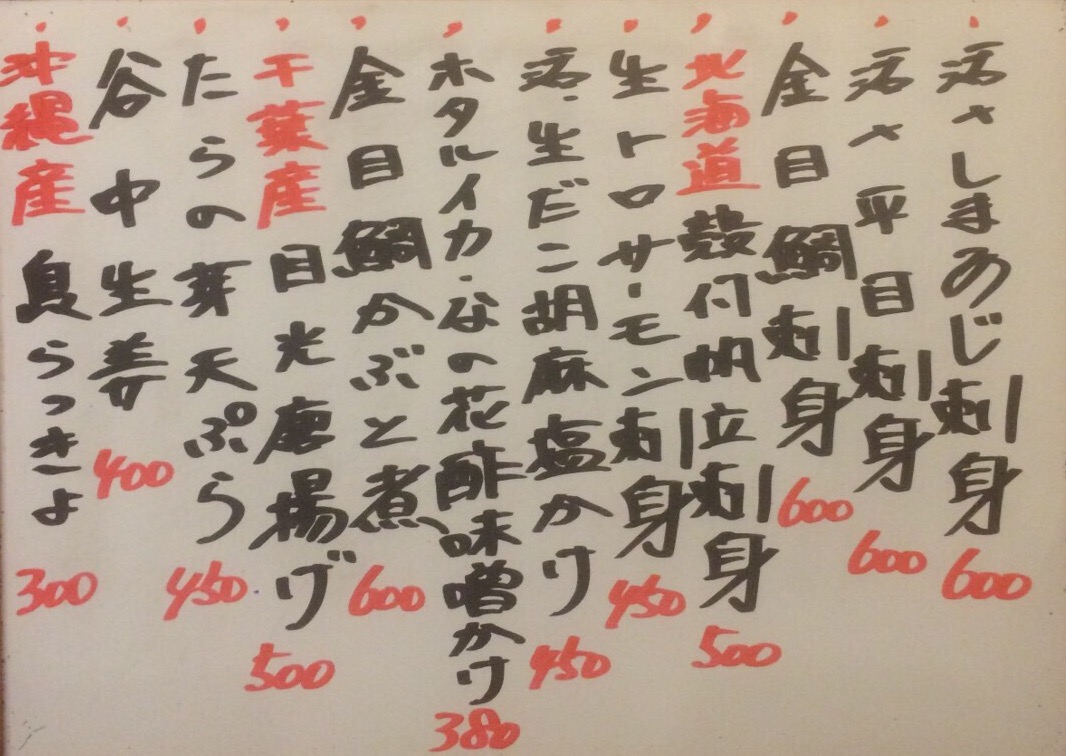 ・活〆しまあじ刺身 600
・活〆平目刺身 600
・金目鯛刺身 600
・北海道殻付帆立刺身 500
・生トロサーモン刺身 450
・活・生だこ胡麻塩かけ 450
・ホタルイカ・なの花酢味噌かけ 380
・金目鯛かぶと煮 600
・千葉産目光唐揚げ 500
・たらの芽天ぷら 450
・谷中生姜 400
・沖縄産島らっきょ 300